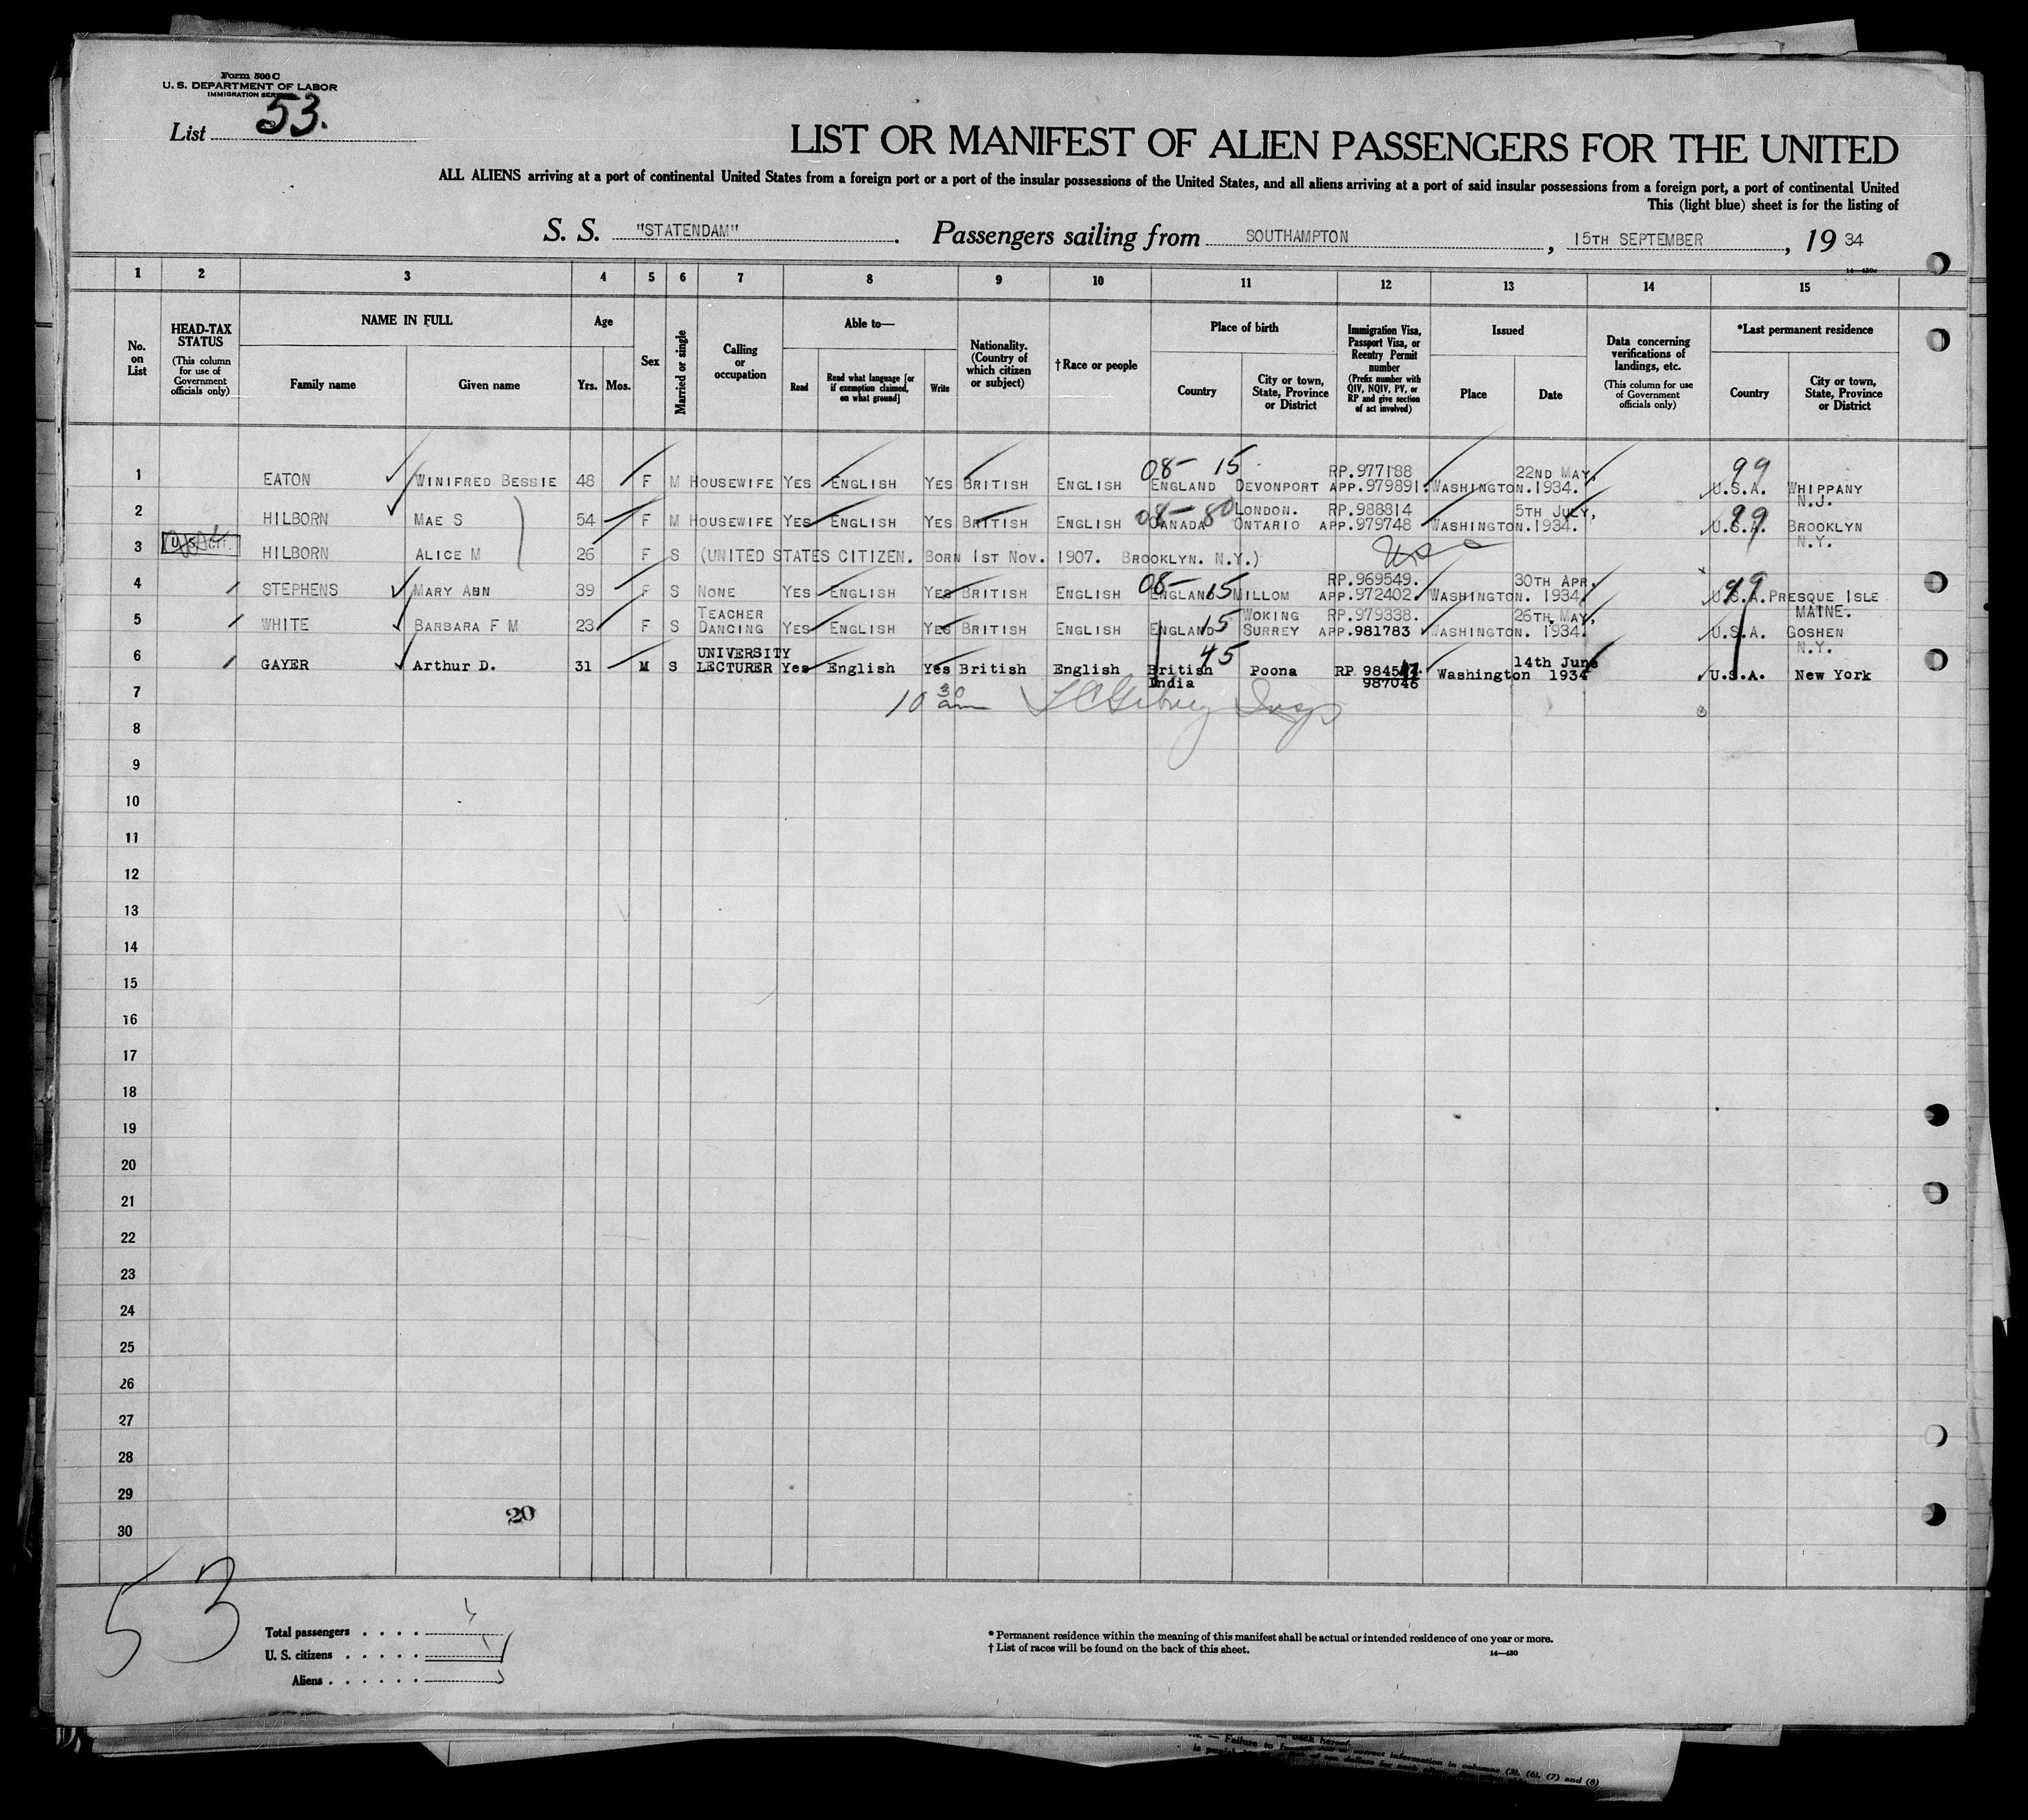 Form 500 C
U. S. DEPARTMENT OF LABOR
IMMIGRATION
List 53.
LIST OR MANIFEST OF ALIEN PASSENGERS FOR THE UNITED
ALL ALIENS arriving at a port of continental United States from a foreign port or a port of the insular possessions of the United States, and all aliens arriving at a port of said insular possessions from a foreign port, a port of continental United
This (light blue) sheet is for the listing of
S. S. "STATENDAM". Passengers sailing from SOUTHAMPTON, 15TH SEPTEMBER, 19 34
1 2 3 4 5 6 7 8 9 10 11 12 13 14 15
No. on List
HEAD-TAX STATUS (This column for use of Government officials only)
NAME IN FULL
Family name
Given name
Age
Yrs. Mos.
Sex
Married or single
Calling or occupation
Able to—
Read
Read what language [or if exemption claimed, on what ground]
Write
Nationality. (Country of which citizen or subject)
†Race or people
Place of birth
Country
City or town, State, Province or District
Immigration Visa, Passport Visa, or Reentry Permit number (Prefix number with QIV, NQIV, PV, or RP and give section of act involved)
Issued
Place
Date
Data concerning verifications of landings, etc. (This column for use of Government officials only)
*Last permanent residence
Country
City or town, State, Province or District
08- 15 RP.977188 22ND MAY, 99
1 EATON WINIFRED BESSIE 48 F M HOUSEWIFE YES ENGLISH YES BRITISH ENGLISH ENGLAND DEVONPORT APP.979891. WASHINGTON. 1934. U.S.A. WHIPPANY N.J.
08- 80 LONDON. RP.988814 5TH JULY, 99
2 HILBORN MAE S 54 F M HOUSEWIFE YES ENGLISH YES BRITISH ENGLISH CANADA ONTARIO APP.979748 WASHINGTON. 1934. U.S.A. BROOKLYN N.Y.
3 HILBORN ALICE M 26 F S (UNITED STATES CITIZEN. BORN 1ST NOV. 1907. BROOKLYN. N.Y.) USC
08- 15 RP.969549. 30TH APR. 99
4 STEPHENS MARY ANN 39 F S NONE YES ENGLISH YES BRITISH ENGLISH ENGLAND MILLOM APP.972402. WASHINGTON. 1934. U.S.A. PRESQUE ISLE MAINE.
TEACHER 15 WOKING RP.979338. 26TH MAY,
5 WHITE BARBARA F M 23 F S DANCING YES ENGLISH YES BRITISH ENGLISH ENGLAND SURREY APP.981783 WASHINGTON. 1934. U.S.A. GOSHEN N.Y.
UNIVERSITY 45 14th June
6 GAYER Arthur D. 31 M S LECTURER Yes English Yes British English British India Poona RP 9845 987046 Washington 1934 U.S.A. New York
7 10 30 am Insp
8
9
10
11
12
13
14
15
16
17
18
19
20
21
22
23
24
25
26
27
28
29
30
20
53
Total passengers
U. S. citizens
Aliens
* Permanent residence within the meaning of this manifest shall be actual or intended residence of one year or more.
† List of races will be found on the back of this sheet.
14—430